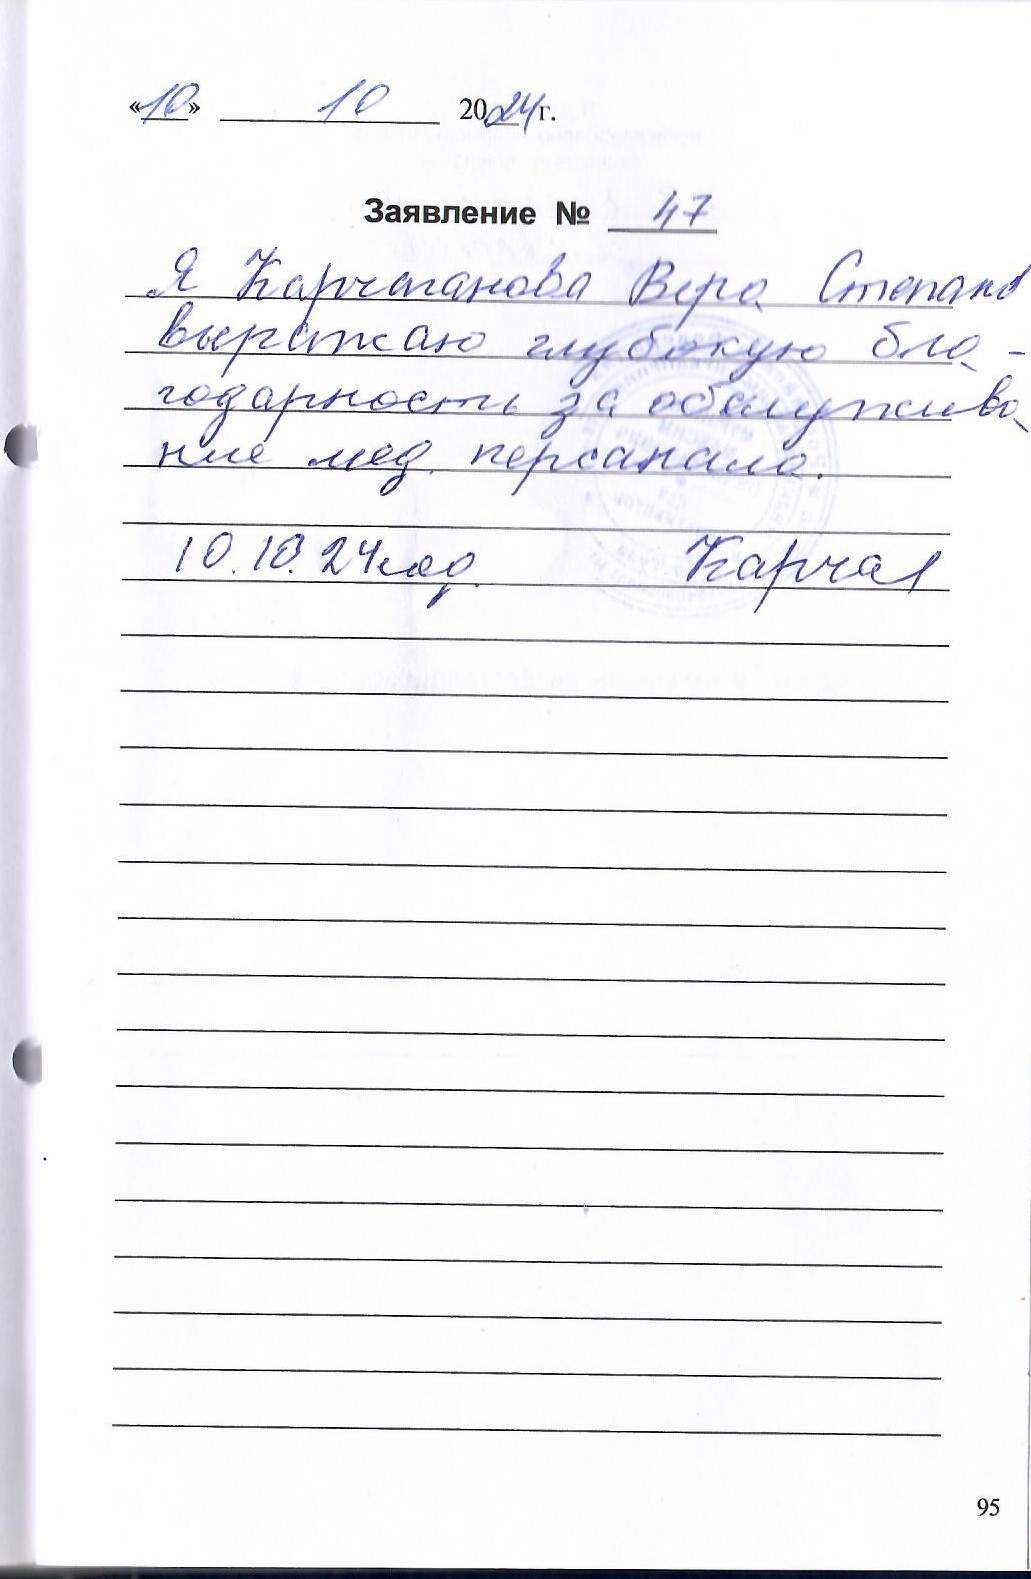 «10» 10 2024 г.
Заявление № 47
Я Карчаганова Вера Степано
выражаю глубокую бла-
годарность за обслужива
ние мед. персанала.
10.10.24 год. Карчаг
95